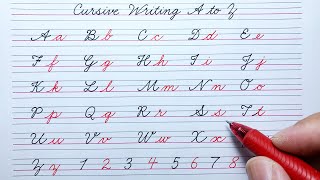 Cursive Writing A to Z
A a B b C c D d E e
F f G g H h I i J j
K k L l M m N n O o
P p Q q R r S s T t
U u V v W w X x
Z y 1 2 3 4 5 6 7 8